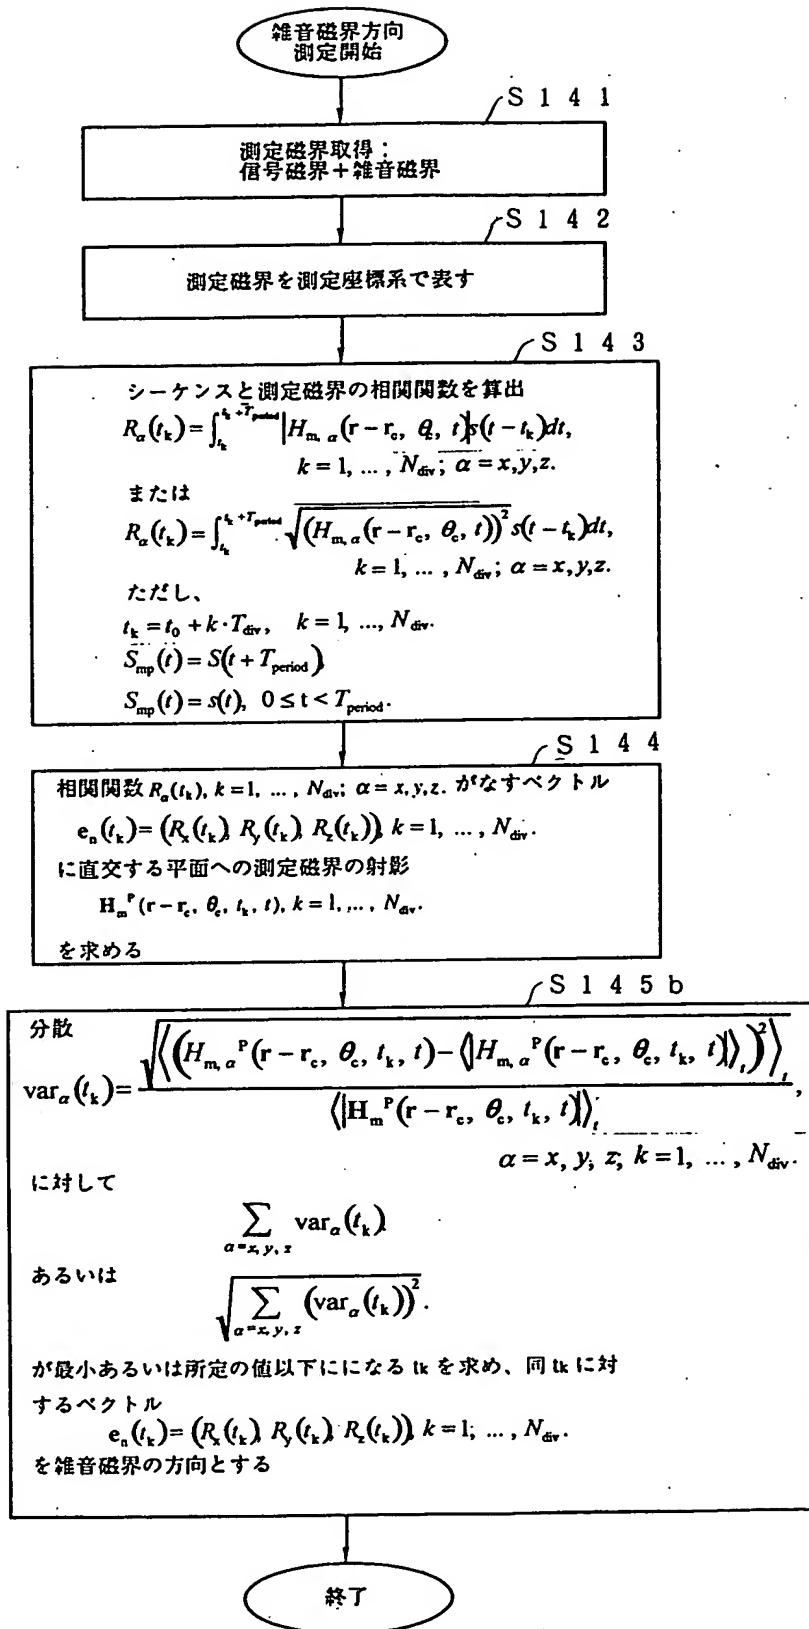 雑音磁界方向
測定開始
S 1 4 1
測定磁界取得：
信号磁界＋雑音磁界
S 1 4 2
測定磁界を測定座標系で表す
S 1 4 3
シーケンスと測定磁界の相関関数を算出
R_α(t_k) = ∫_{t_k}^{t_k + T_period} |H_{m, α}(r − r_c, θ_c, t)|s(t − t_k)dt,
k = 1, ... , N_div; α = x,y,z.
または
R_α(t_k) = ∫_{t_k}^{t_k + T_period} √(H_{m, α}(r − r_c, θ_c, t))² s(t − t_k)dt,
k = 1, ... , N_div; α = x,y,z.
ただし、
t_k = t_0 + k · T_div, k = 1, ..., N_div.
S_mp(t) = S(t + T_period)
S_mp(t) = s(t), 0 ≤ t < T_period.
S 1 4 4
相関関数 R_α(t_k), k = 1, ... , N_div; α = x,y,z. がなすベクトル
e_n(t_k) = (R_x(t_k), R_y(t_k), R_z(t_k)), k = 1, ... , N_div.
に直交する平面への測定磁界の射影
H_m^P(r − r_c, θ_c, t_k, t), k = 1, ... , N_div.
を求める
S 1 4 5 b
分散
var_α(t_k) = √⟨(H_{m, α}^P(r − r_c, θ_c, t_k, t) − ⟨|H_{m, α}^P(r − r_c, θ_c, t_k, t)|⟩_t)²⟩_t / ⟨|H_m^P(r − r_c, θ_c, t_k, t)|⟩_t,
α = x, y, z, k = 1, ... , N_div.
に対して
∑_{α=x, y, z} var_α(t_k)
あるいは
√∑_{α=x, y, z} (var_α(t_k))².
が最小あるいは所定の値以下にになる tk を求め、同 tk に対
するベクトル
e_n(t_k) = (R_x(t_k), R_y(t_k), R_z(t_k)), k = 1, ... , N_div.
を雑音磁界の方向とする
終了